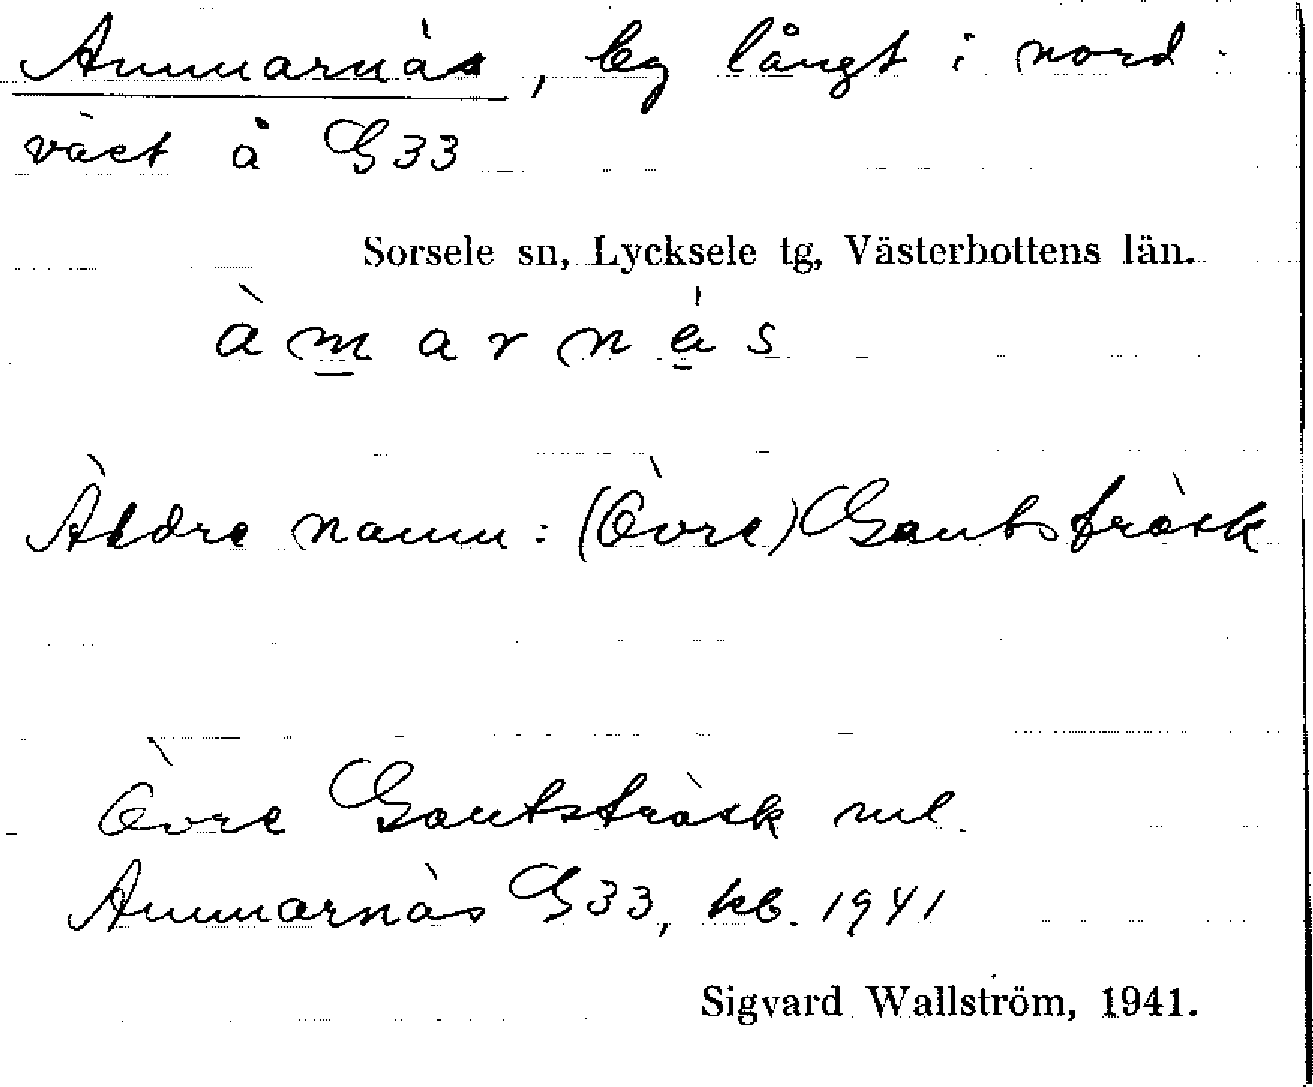 Ammarnäs, by långt i nord-
väst å G33
Sorsele sn, Lycksele tg, Västerbottens län.
àmarnäs
Äldre namn: (Övre) Gautsträsk
Övre Gautsträsk ml.
Ammarnäs G33, kb. 1941
Sigvard Wallström, 1941.